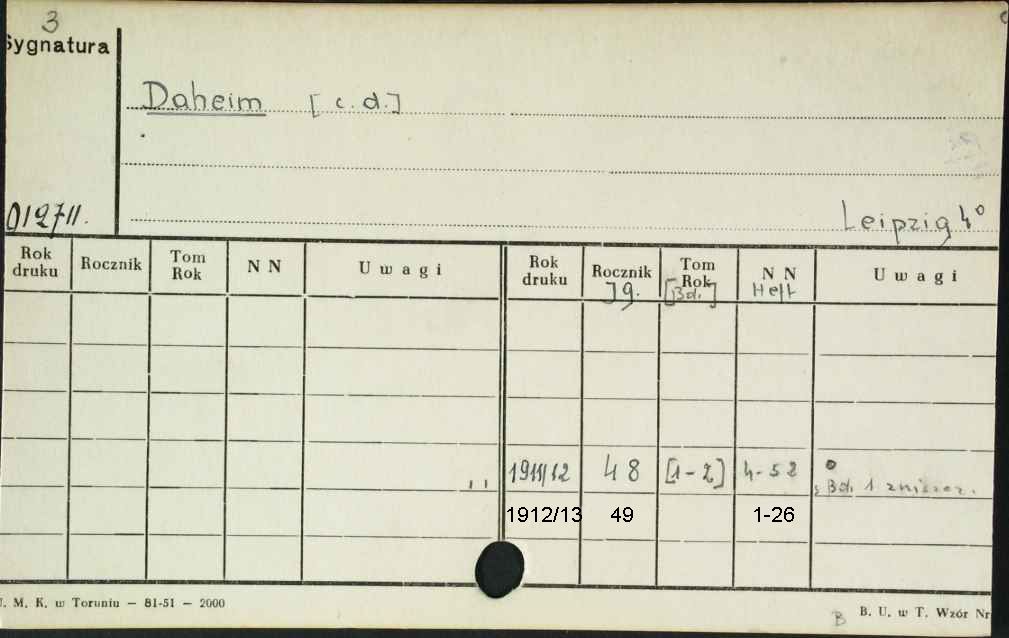 3
Sygnatura
Daheim [c.d.]
012711.
Leipzig 4°
Rok druku Rocznik Tom Rok N N Uwagi Rok druku Rocznik Tom Rok N N Uwagi
Jg. [Bd.] Heft
1911/12 48 [1-2] 4-52 Bd. 1 zniszcz.
1912/13 49 1-26
U. M. K. w Toruniu — 81-51 — 2000
B B. U. w T. Wzór Nr